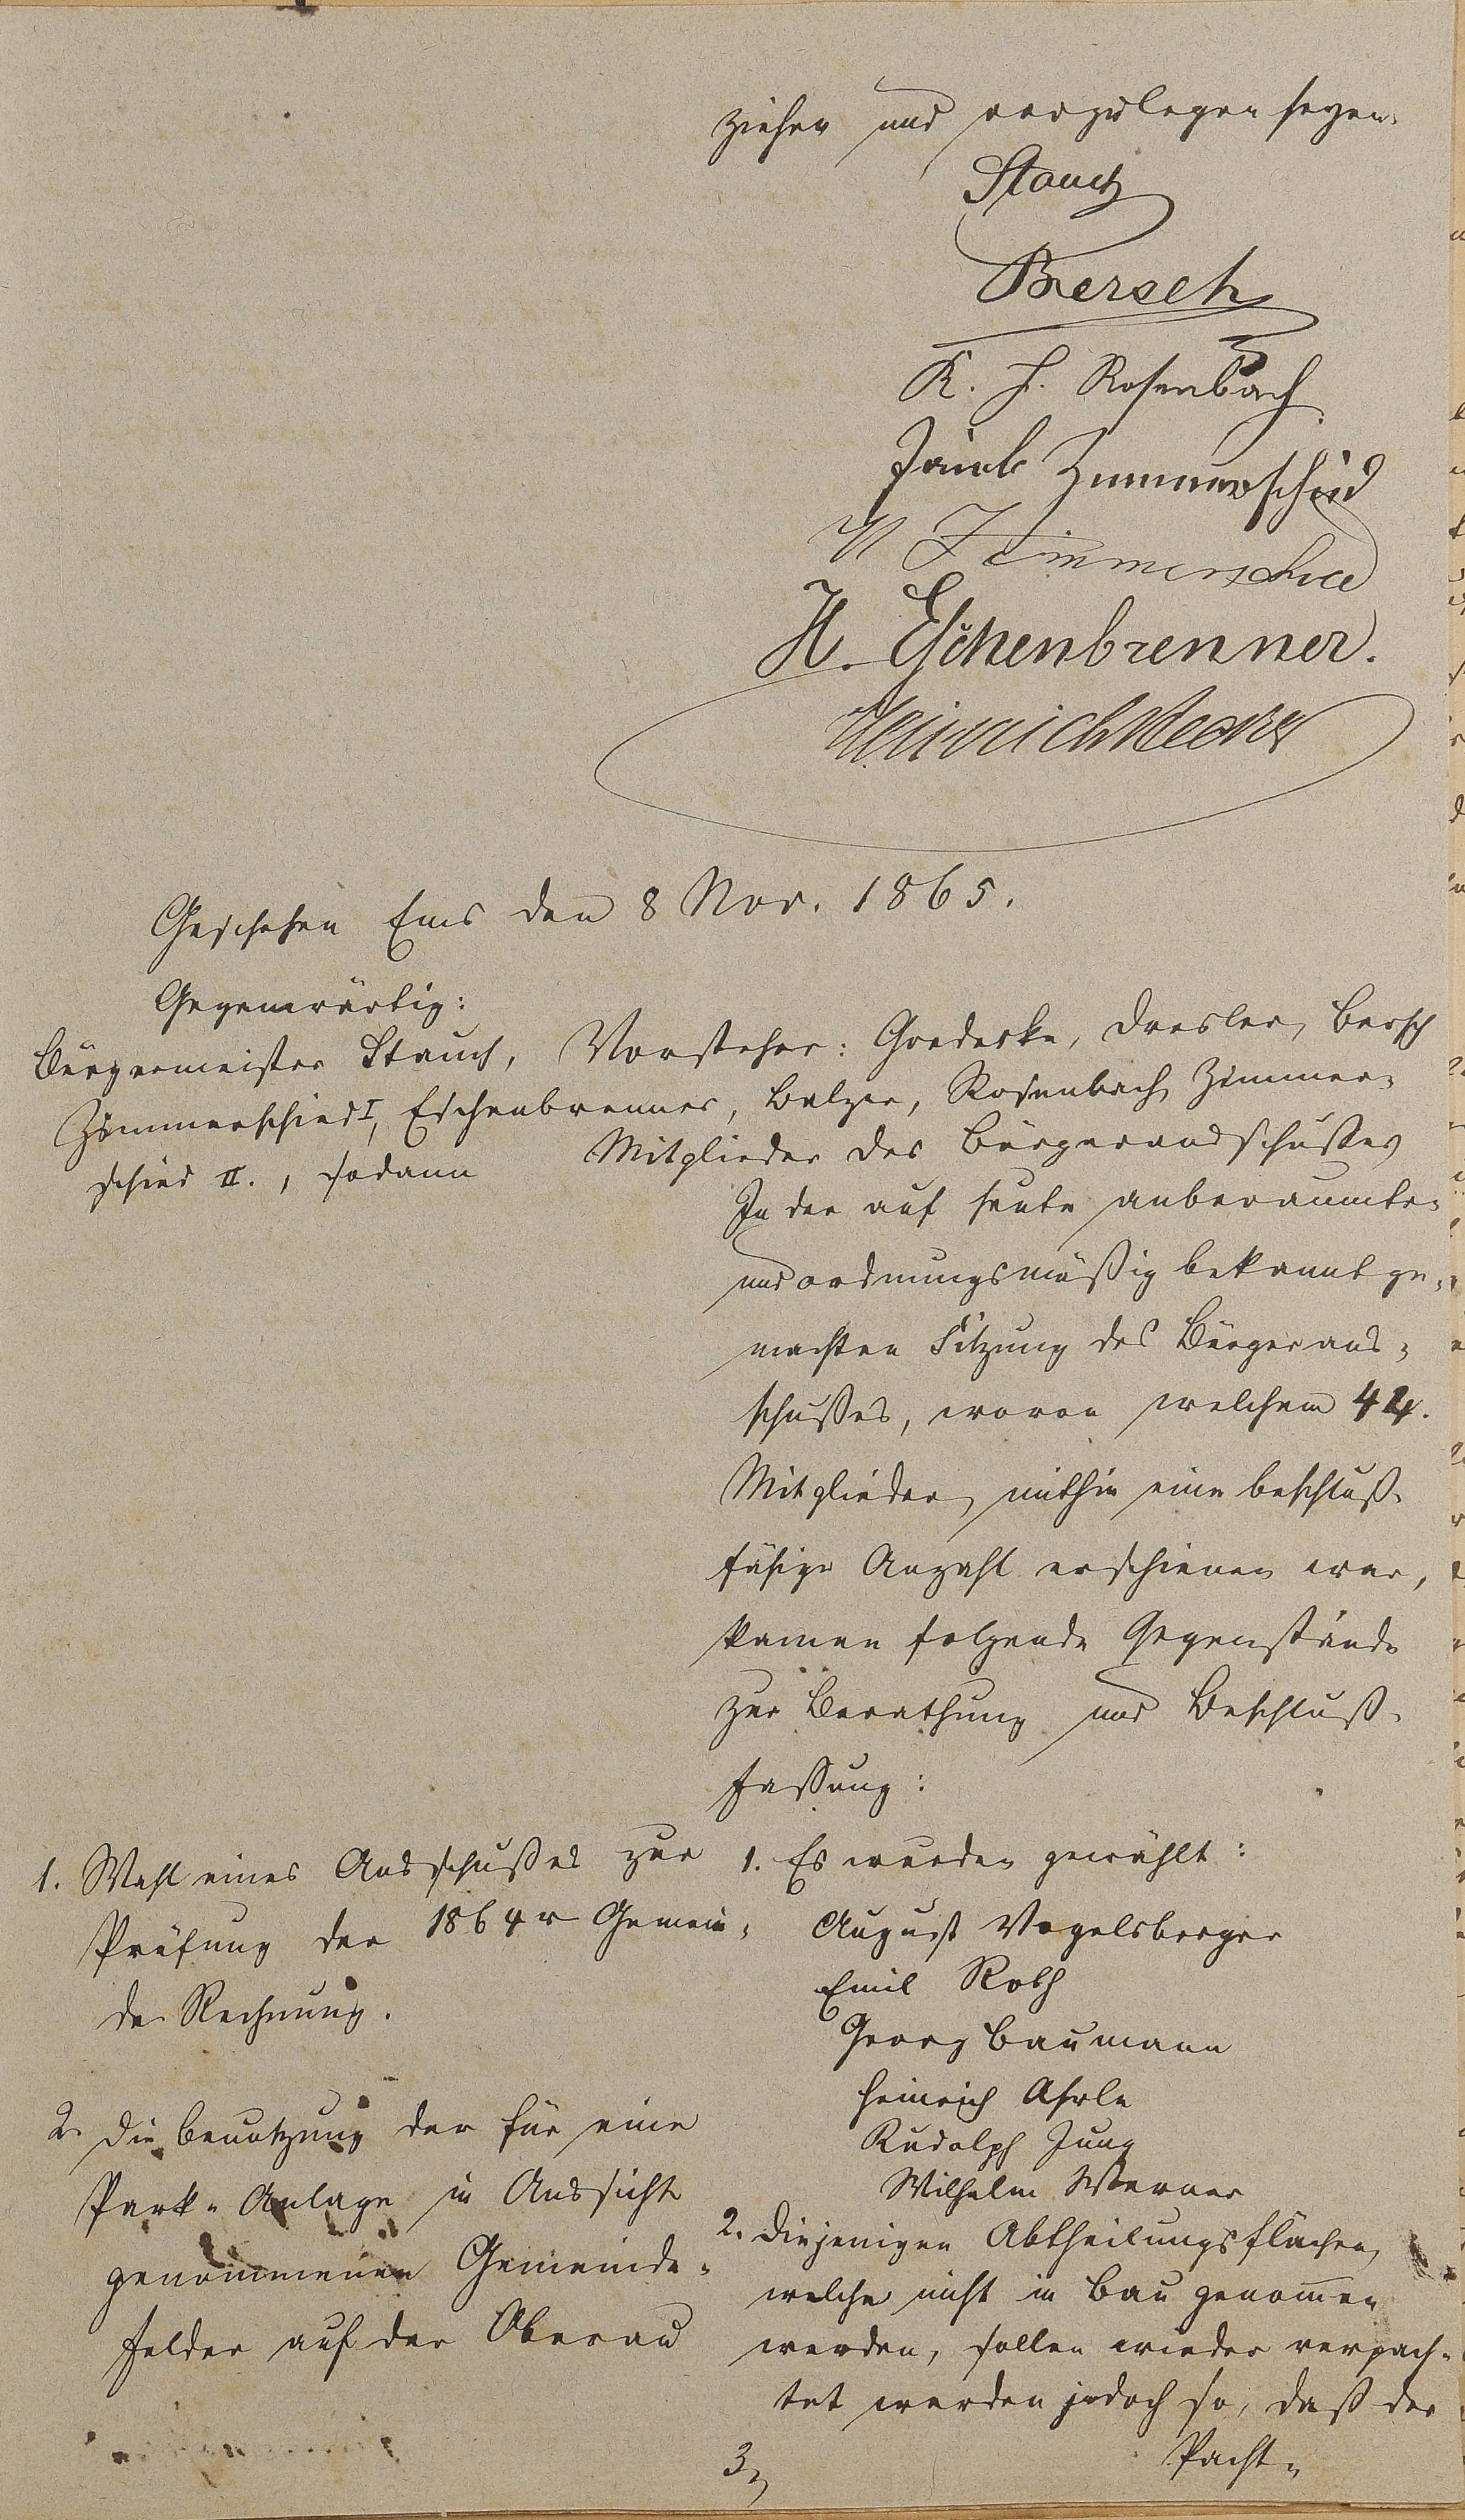 ziehen und vorzulegen seyen.
Stauch
Bersch
K. H. Rosenbach
Jacob Zimmerschied
Zimmerschied
H. Eschenbrenner.
Heinrich
Geschehen Ems den 8 Nov. 1865.
Gegenwärtig:
Bürgermeister Stauch, Vorsteher: Goedecke, Dresler, Bersch
Zimmerschied I, Eschenbrenner, Balzer, Rosenbach, Zimmer-
schied II., sodann Mitglieder des Bürgerausschußes
In der auf heute anberaumten
und ordnungsmäßig bekannt ge-
machten Sitzung des Bürgeraus-
schußes, wovon welchem 44.
Mitglieder, mithin eine beschluß-
fähige Anzahl erschienen war,
kamen folgende Gegenstände
zur Berathung und Beschluß-
fassung:
1. Wahl eines Ausschußes zur
Prüfung der 1864r Gemein-
de Rechnung.
1. Es wurden gewählt:
August Vogelsberger
Emil Roth
Georg Baumann
Heinrich Ahrle
Rudolph Jung
Wilhelm Werner
2. Die Benutzung der für eine
Park-Anlage in Aussicht
genommenen Gemeinde-
felder auf der Oberau
2. Diejenigen Abtheilungsflächen,
welche nicht in Bau genommen
werden, sollen wieder verpach-
tet werden jedoch so, daß der
Pacht-
3,